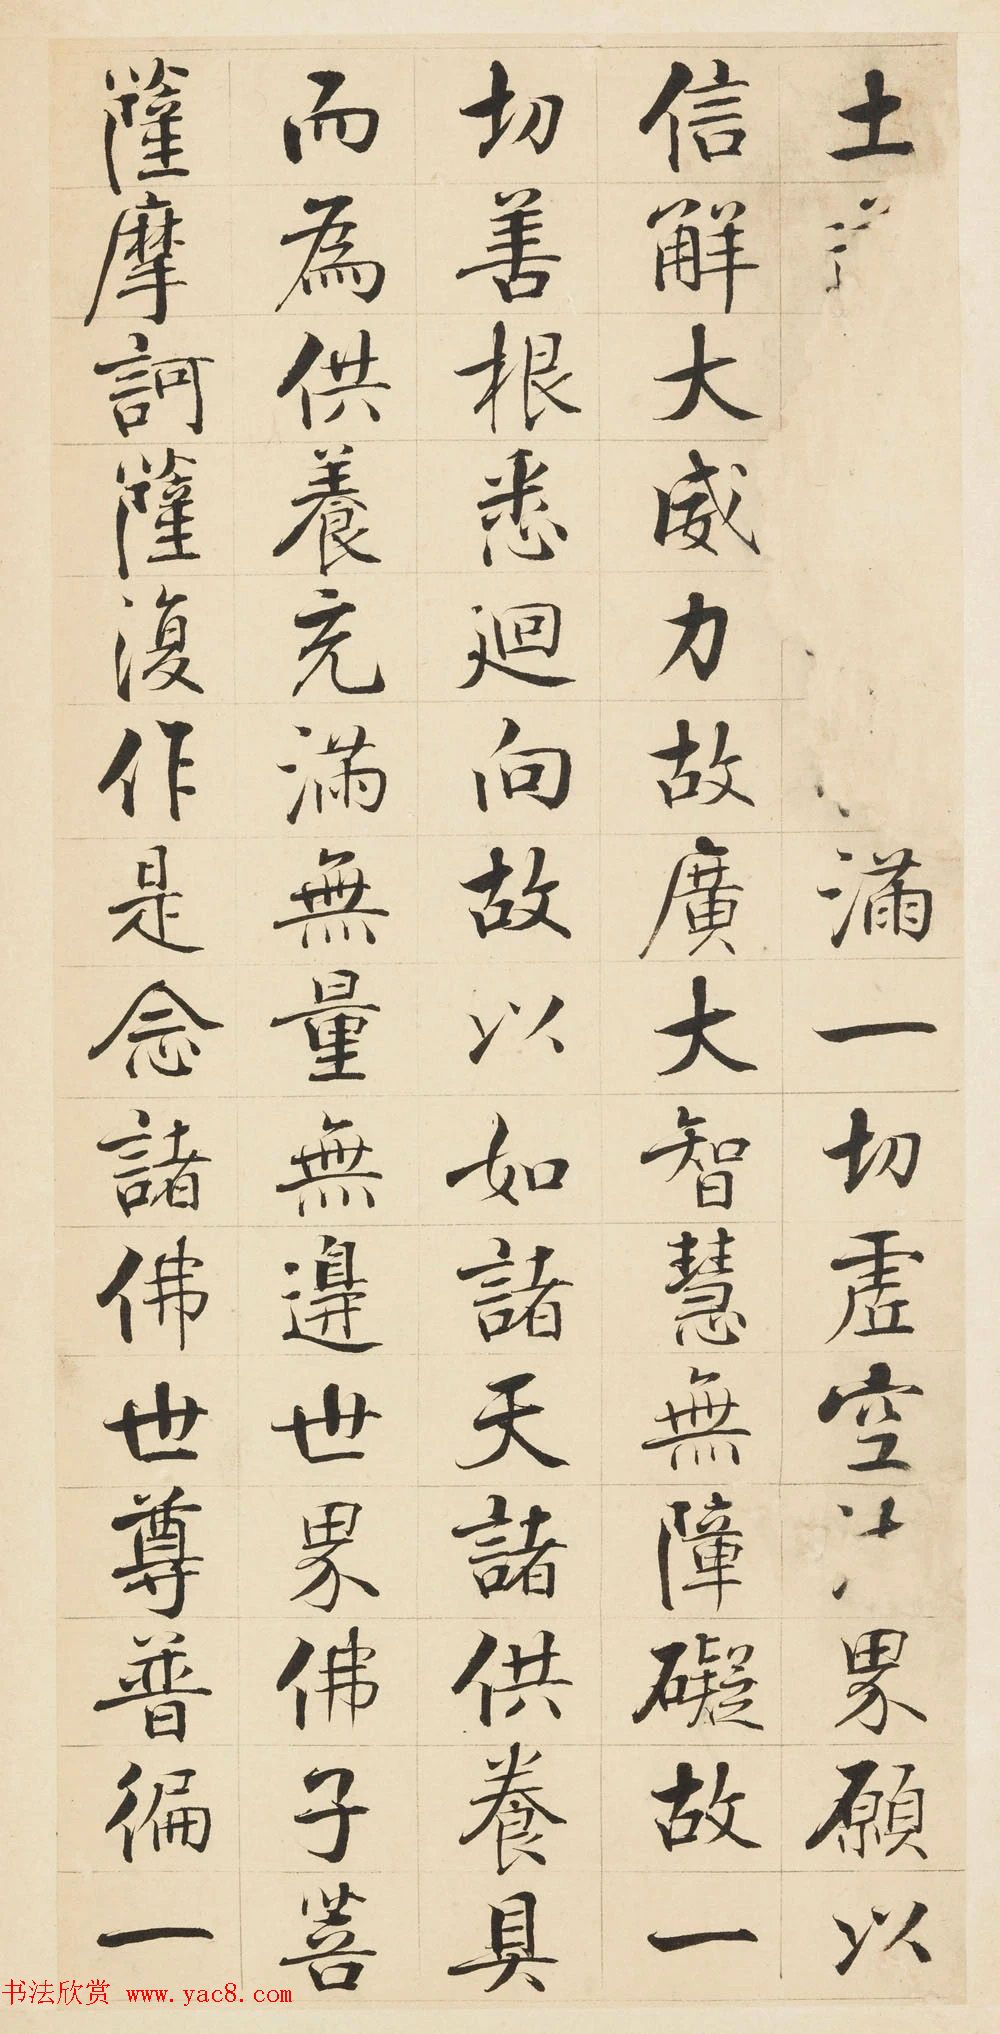 土滿一切虛空界願以
信解大威力故廣大智慧無障礙故一
切善根悉迴向故以如諸天諸供養具
而為供養充滿無量無邊世界佛子菩
薩摩訶薩復作是念諸佛世尊普徧一
书法欣赏 www.yac8.com